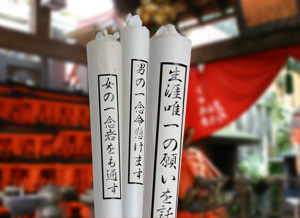 生涯唯一の願いを託
男の一念命懸けます
女の一念岩をも通す